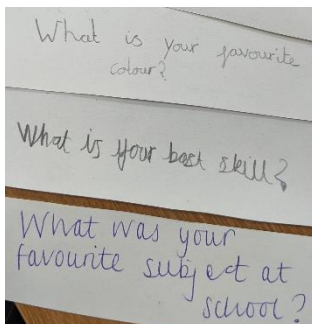 What is your favourite
colour?
What is your best skill?
What was your
favourite subject at
school?